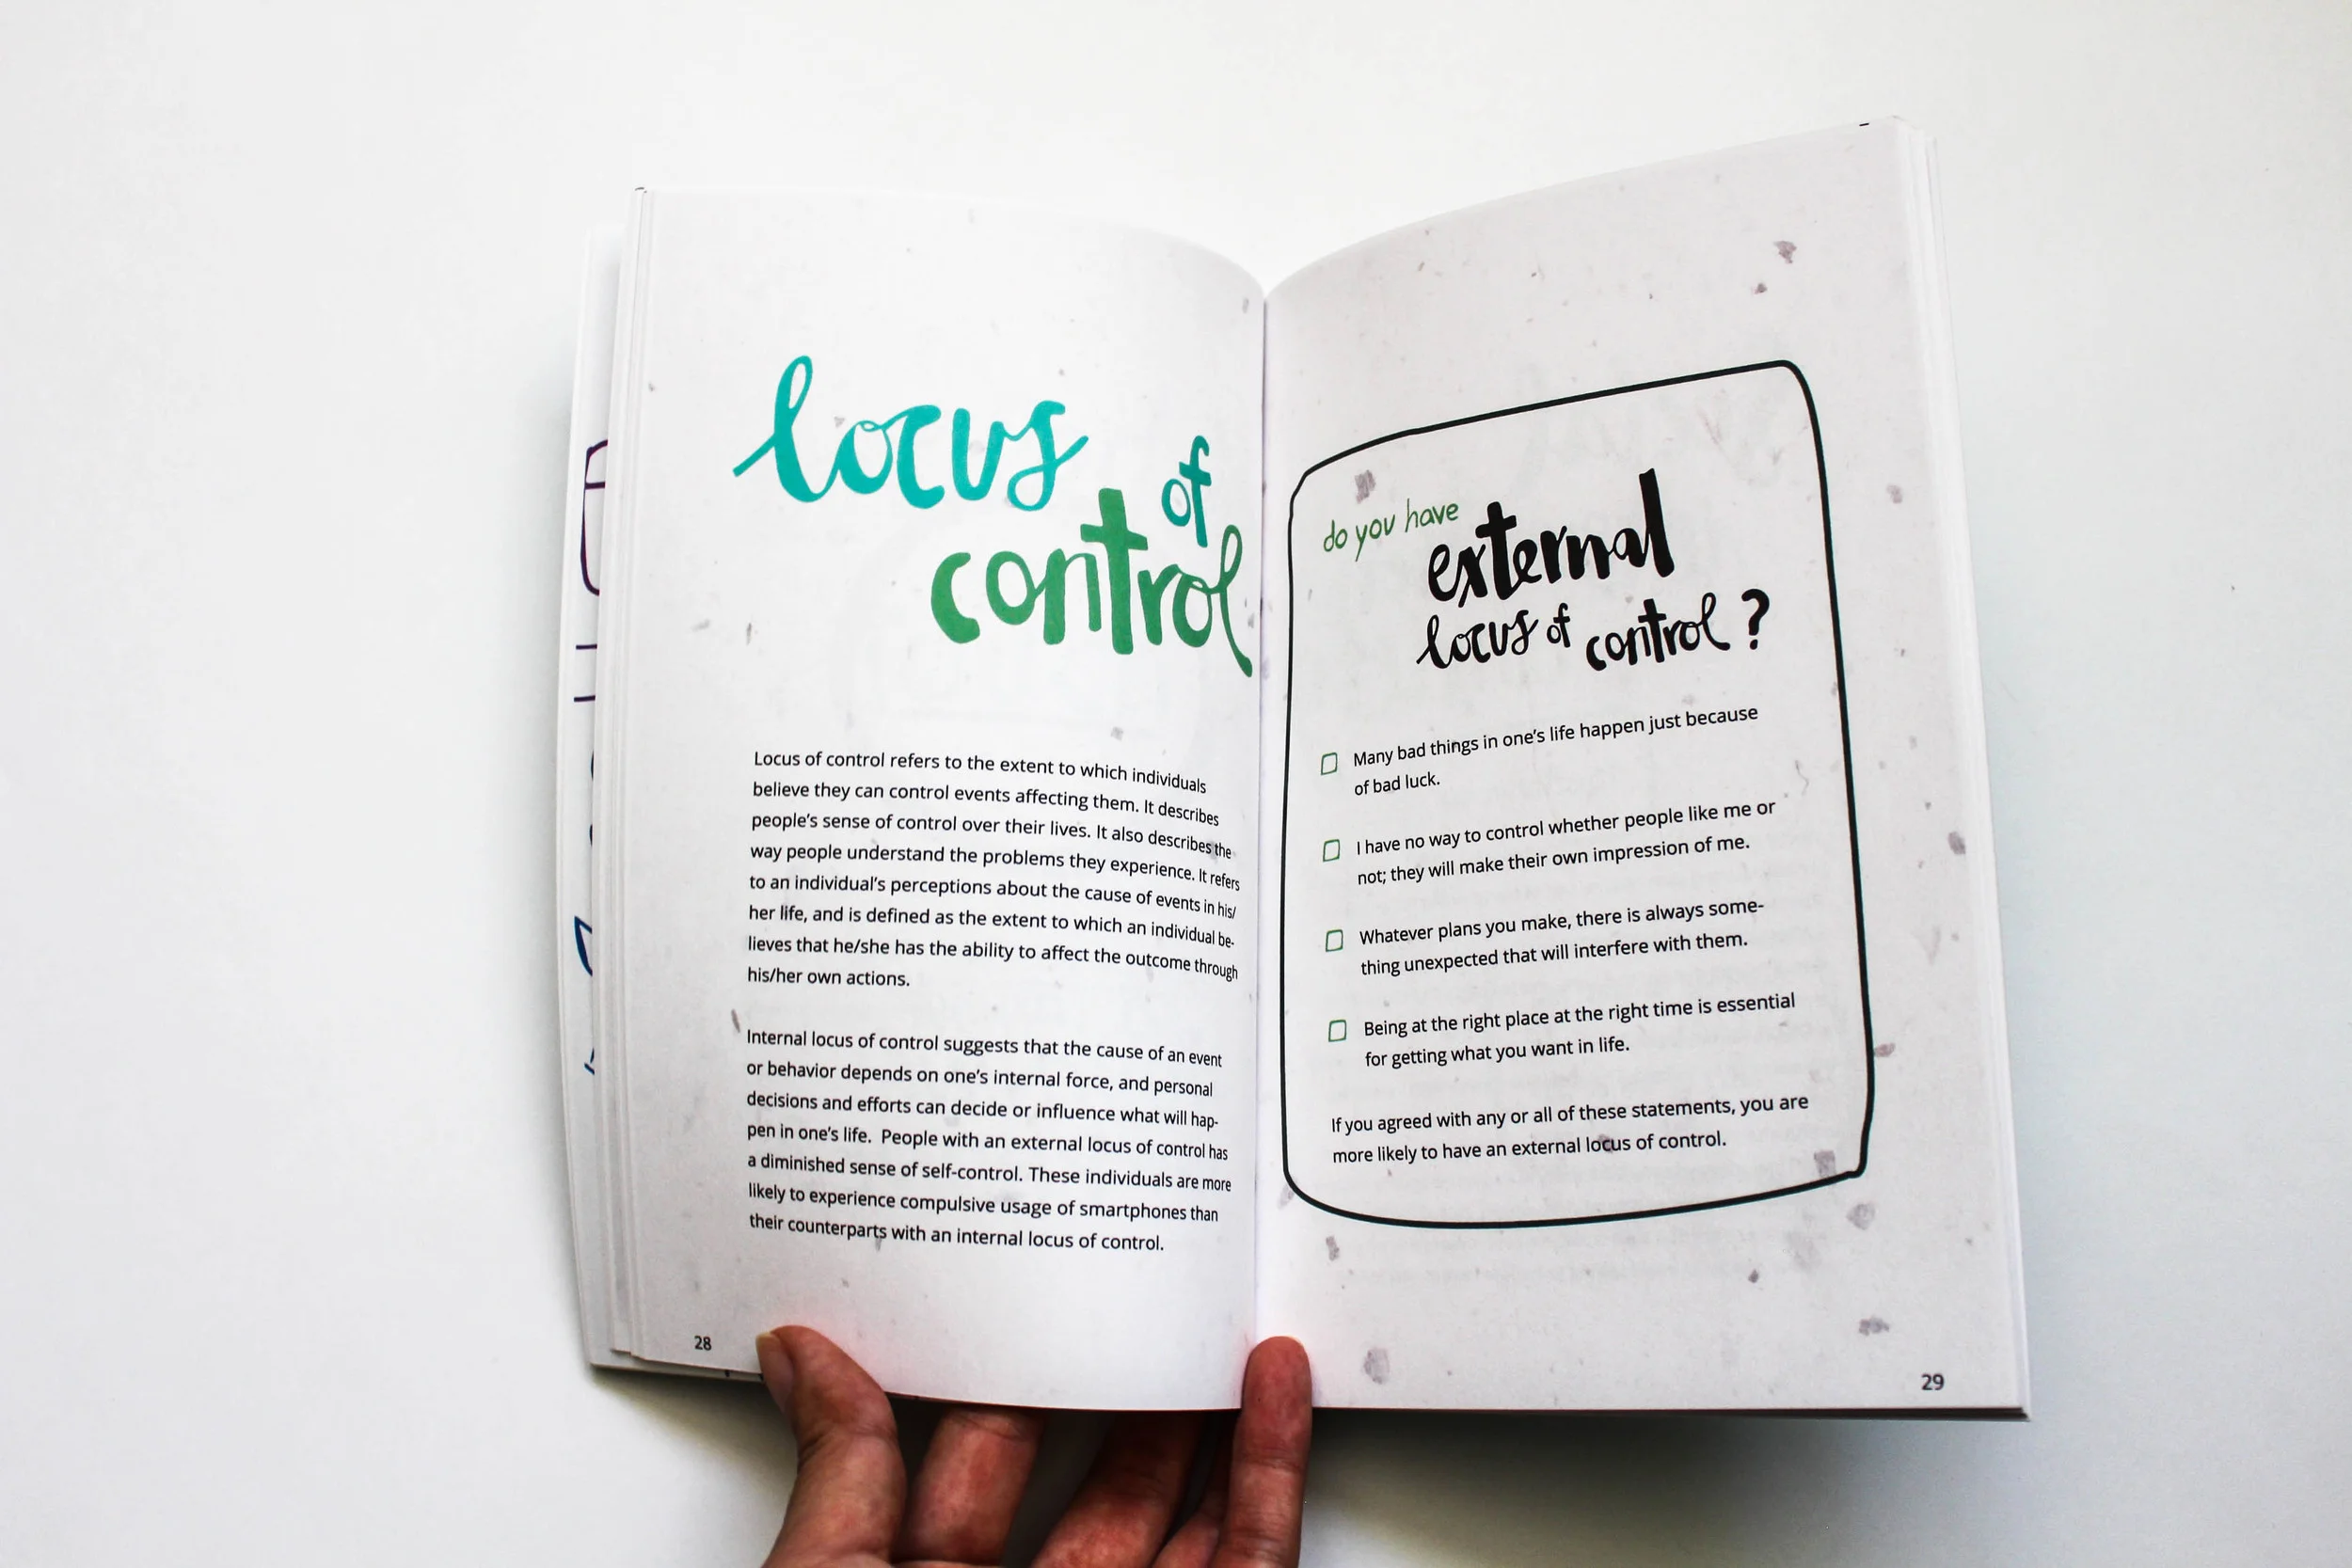 locus
of
control
Locus of control refers to the extent to which individuals
believe they can control events affecting them. It describes
people's sense of control over their lives. It also describes the
way people understand the problems they experience. It refers
to an individual's perceptions about the cause of events in his/
her life, and is defined as the extent to which an individual be-
lieves that he/she has the ability to affect the outcome through
his/her own actions.
Internal locus of control suggests that the cause of an event
or behavior depends on one's internal force, and personal
decisions and efforts can decide or influence what will hap-
pen in one's life.  People with an external locus of control has
a diminished sense of self-control. These individuals are more
likely to experience compulsive usage of smartphones than
their counterparts with an internal locus of control.
28
do you have
external
locus of control ?
Many bad things in one's life happen just because
of bad luck.
I have no way to control whether people like me or
not; they will make their own impression of me.
Whatever plans you make, there is always some-
thing unexpected that will interfere with them.
Being at the right place at the right time is essential
for getting what you want in life.
If you agreed with any or all of these statements, you are
more likely to have an external locus of control.
29